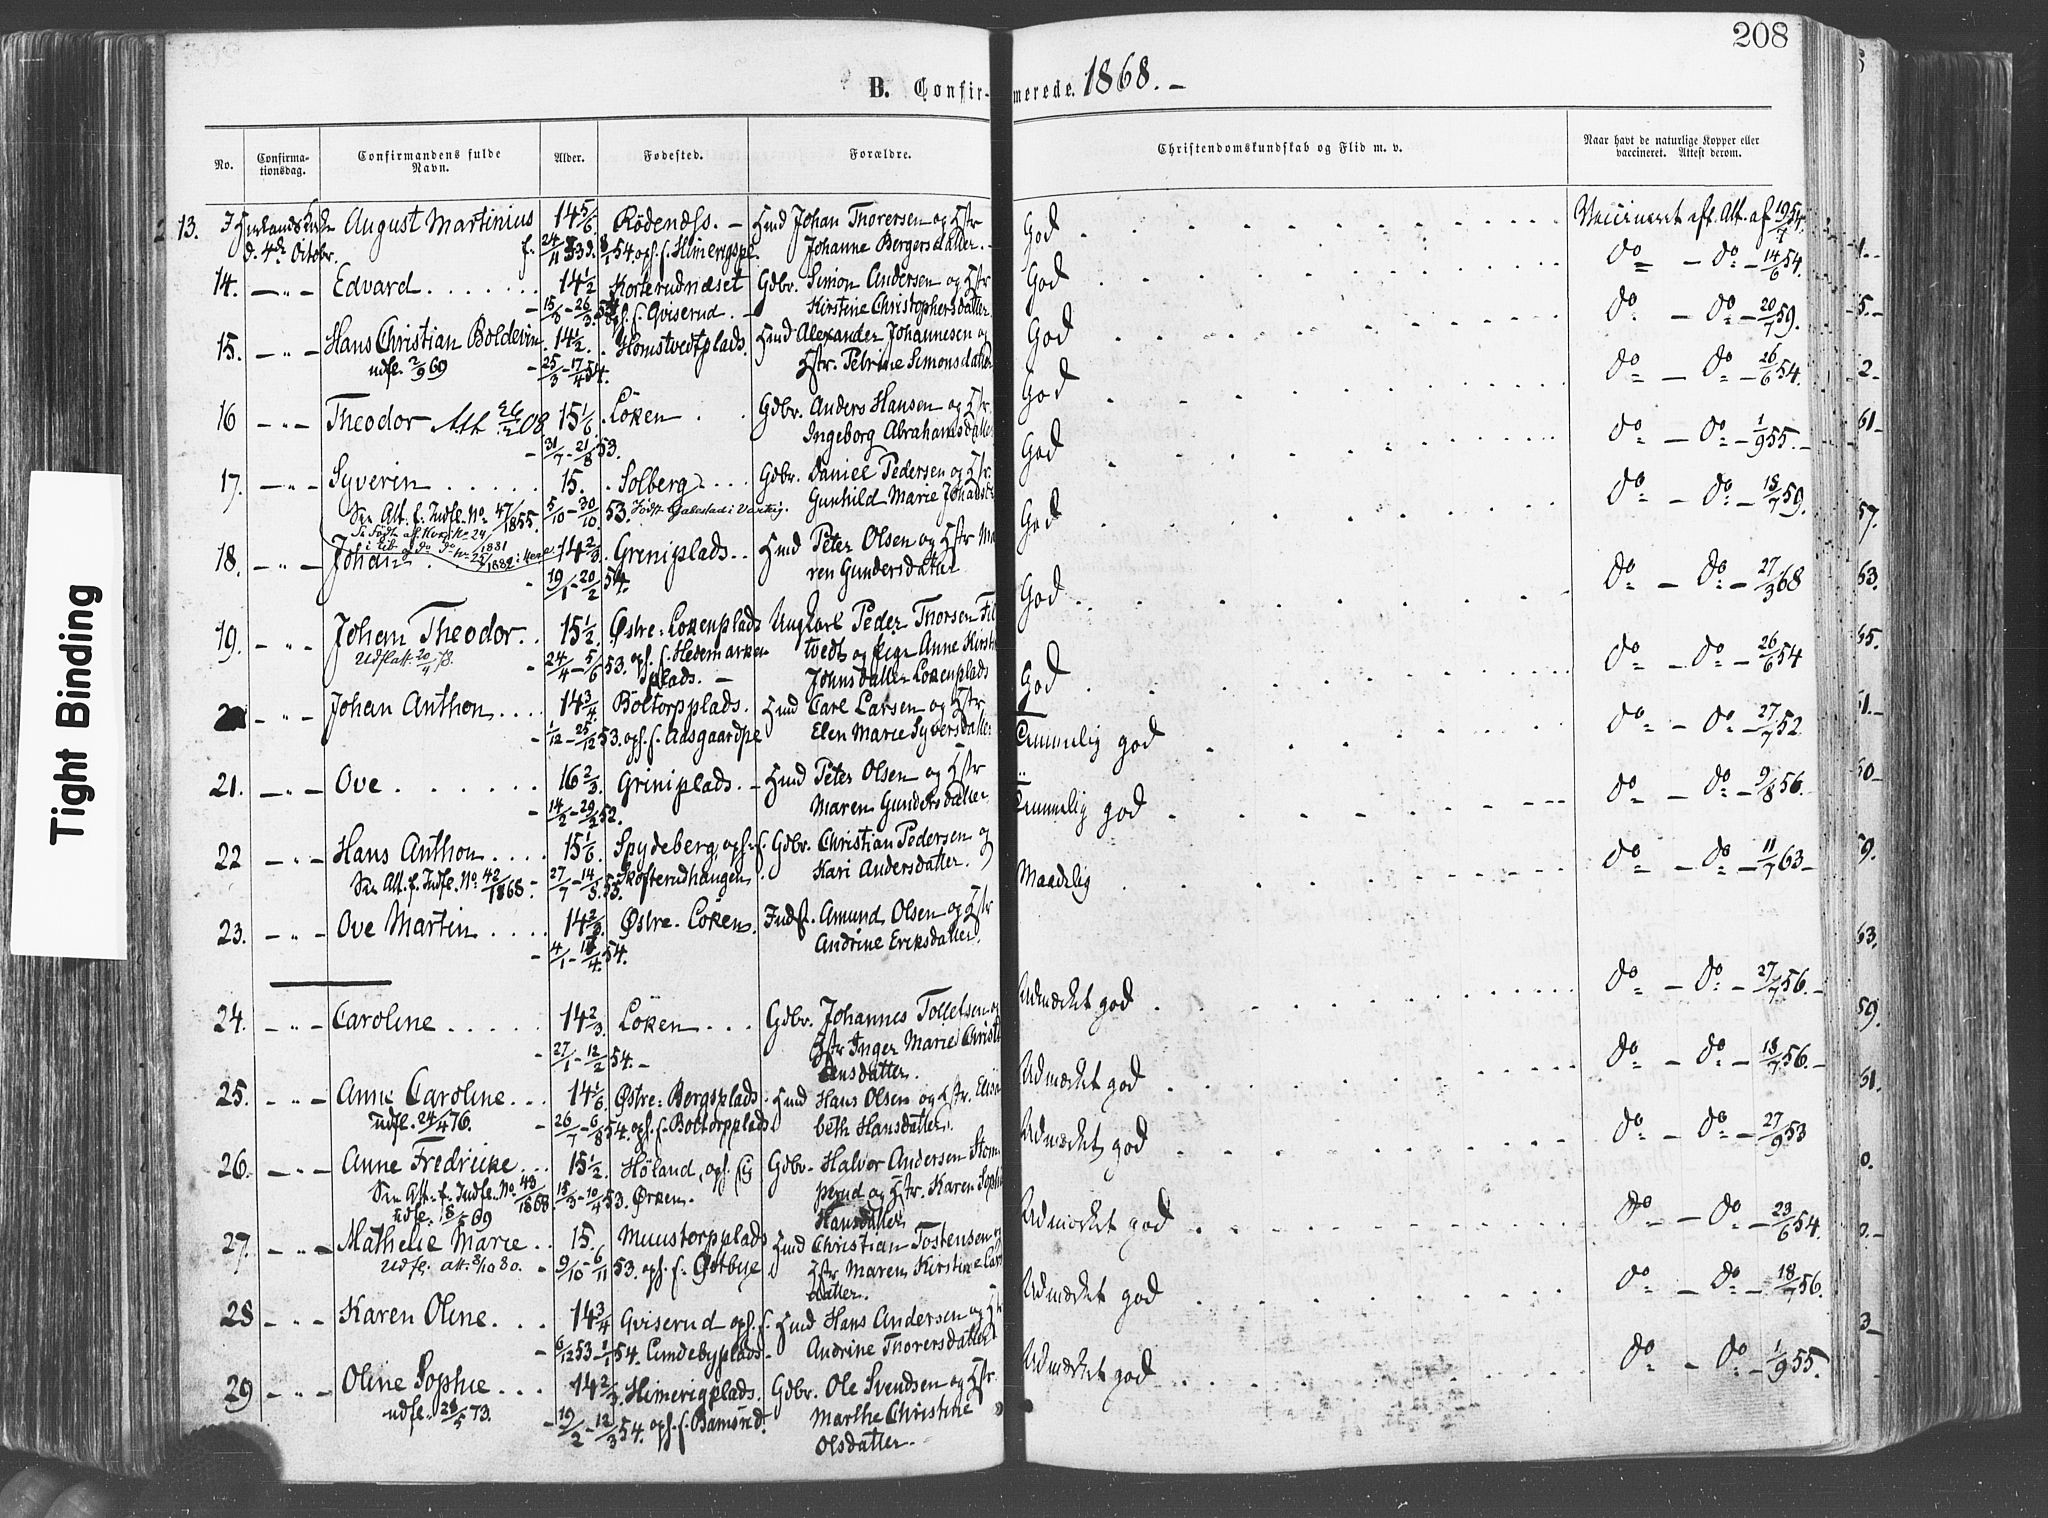 208
B. Confir-merede. 1868.
No.
Confirma-
tionsdag.
Confirmandens fulde
Navn.
Alder.
Fødested.
Forældre.
Christendomskundskab og Flid m. v.
Naar havt de naturlige Kopper eller
vaccineret. Attest derom.
13. d. 4de Octobr. August Martinius 14 5/6 Rödenæss. Hmd Johan Thoresen og Hstr God Vaccineret aft. Att. af 19/4 54.
f. 24/11 53 d. 8/1 54 ops. f. Himerigspl Johanne Borgersdatter.
14. Edvard 14 1/2 Korterudnæset Gdbr. Simon Andersen og Hstr God do do 14/6 54.
ops. f. Gviserud. Kirstine Christophersdatter.
15. Hans Christian Boldevin 14 1/2 Homstvedtplads. Hmd Alexander Johannesen og God do do 20/7 59.
udfl. 2/9 69 25/3 - 17/4 54. Hstr. Petrine Simonsdatter
16 Theodor Att 26/2 08 15 1/6 Löken Gdbr. Anders Hansen og Hstr God do do 26/6 54.
31/7 - 21/8 53. Ingeborg Abrahamsdatter
17. Syverin 15. Solberg Gdbr. Daniel Pedersen og Hstr. God do do 1/9 55.
Se Att. f. Indfl. No. 47/1855. 5/10 - 30/10 53. Gunhild Marie
18. Johan 14 2/3 Greniplads Hmd Peter Olsen og Hstr Ma God do do 18/7 59.
19/1 - 20/2 54. ren Gundersdatter
19. Johan Theodor 15 1/2 Østre Lökenplads Ungkarl Peder Thorsen God do do 27/3 68
Udfl. att. 20/4 78. 24/4 - 5/6 53. ops. f. Hedemarken tvedt og Pige Anne Kirst
plads. Johnsdatter Lökenplads
Johan Anthon 14 3/4 Boltorpplads. Hmd Carl Larsen og Hstr God do do 26/6 54
1/12 - 25/12 53. ops. f. Aasgaardpl Elen Marie Syversdatter
21. Ove 16 2/3 Griniplads. Hmd Peter Olsen og Hstr Temmelig god do do 27/7 52
14/2 - 29/2 52. Maren Gundersdatter.
22 Hans Anthon 15 1/6 Spydeberg, ops. f. Gdbr. Christian Pedersen og Temmelig god do do 9/8 56.
Se Att. f. Indfl. No. 42/1868 27/7 - 14/8 53. Skofterudhaugen Kari Andersdatter.
23. Ove Martin 14 2/3 Østre Löken. Indst. Amund Olsen og Hstr Maadelig do do 11/7 63
4/1 - 54. Andrine Eriksdatter.
24. Caroline 14 2/3 Löken Gdbr. Johannes Tollefsen og Udmærket god do do 27/7 56.
27/1 - 12/2 54. Hstr Inger Marie Christi
ansdatter.
25. Anne Caroline 14 1/6 Østre Borgsplads Hmd Hans Olsen og Hstr. Elisa Udmærket god do do 18/7 56.
udfl. 24/4 76. 26/7 - 6/8 54. ops. f. Boltorpplads beth Hansdatter.
26. Anne Fredricke 15 1/2 Høland, ops. Gdbr. Halvor Andersen Udmærket god do do 27/9 53
Se Att. f. Indfl. No. 43/1868. 15/3 - 10/4 53. Ørken. perud og Hstr. Karen Sophie
Hansdatter
27 Mathelie Marie 15. Muustorpplads Hmd Christian Tostensen og Udmærket god do do 23/6 54.
Udfl. att. 8/10 80. 9/10 - 6/11 53. ops. f. Østbye Hstr Maren Kirstine Lars
datter.
28 Karen Oline. 14 3/4 Gviserud ops. f. Hmd Hans Andersen og Hstr Udmærket god do do 18/7 56.
6/12 53 - 1/1 54. Lundebyplads Andrine Thorersdatter
29 Oline Sophie 14 2/3 Himerigplads. Gdbr. Ole Svendsen og Hstr. Udmærket god do do 1/9 55.
udfl. 28/5 73. 19/2 - 12/3 54. ops. f. Bamsrud. Marthe Christine
Olsdatter.
Tight Binding